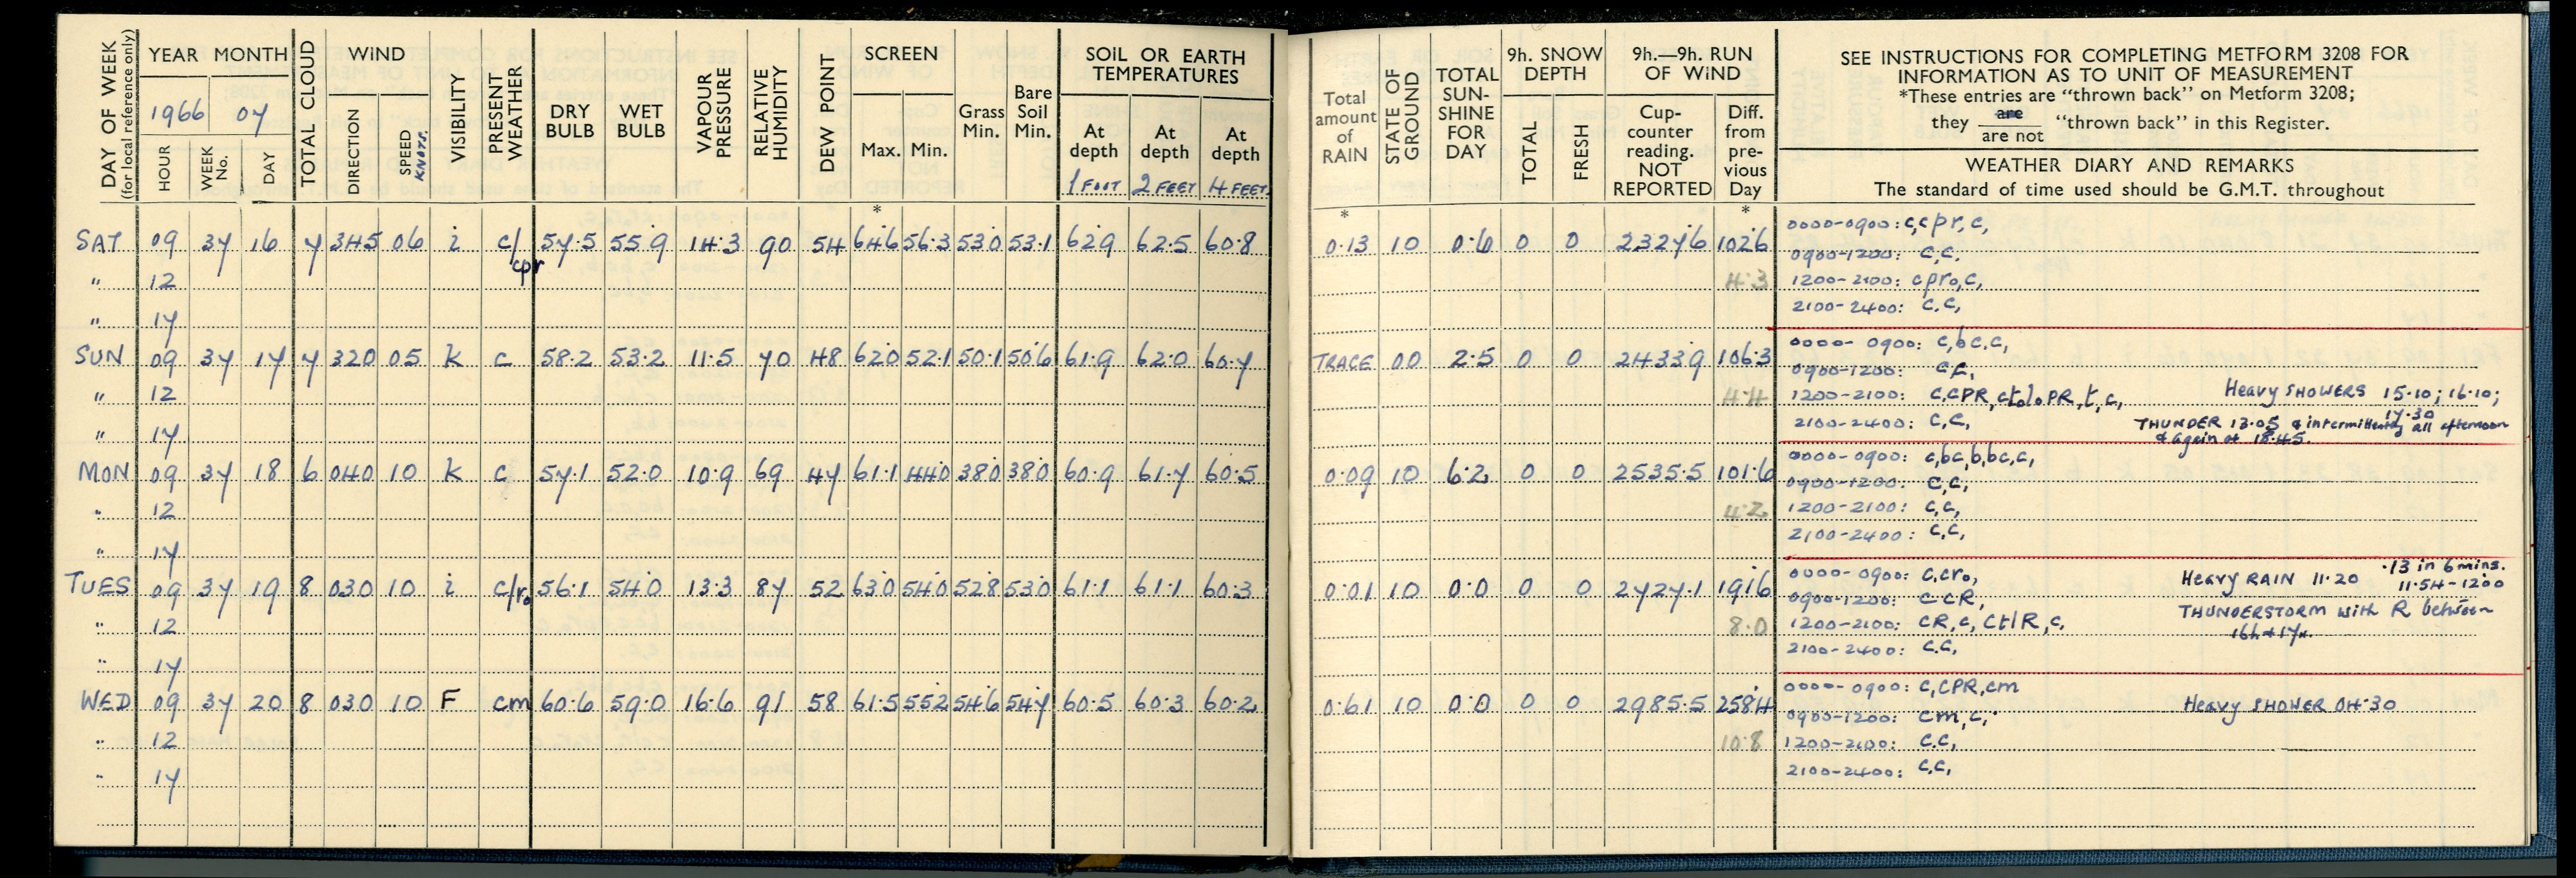 DAY OF WEEK
(for local reference only)
YEAR MONTH
1966 07
HOUR
WEEK No.
DAY
TOTAL CLOUD
WIND
DIRECTION
SPEED
KNOTS.
VISIBILITY
PRESENT WEATHER
DRY BULB
WET BULB
VAPOUR PRESSURE
RELATIVE HUMIDITY
DEW POINT
SCREEN
Max. Min.
Grass Min.
Bare Soil Min.
SOIL OR EARTH
TEMPERATURES
At depth At depth At depth
1 FOOT 2 FEET 4 FEET
Total amount of RAIN
STATE OF GROUND
TOTAL SUN-SHINE FOR DAY
9h. SNOW DEPTH
TOTAL
FRESH
9h.—9h. RUN OF WIND
Cup-counter reading. NOT REPORTED
Diff. from pre-vious Day
SEE INSTRUCTIONS FOR COMPLETING METFORM 3208 FOR
INFORMATION AS TO UNIT OF MEASUREMENT
*These entries are “thrown back” on Metform 3208;
they are / are not “thrown back” in this Register.
WEATHER DIARY AND REMARKS
The standard of time used should be G.M.T. throughout
* * *
SAT 09 37 16 7 345 06 i c/cpr 57.5 55.9 14.3 90 54 64.6 56.3 53.0 53.1 62.9 62.5 60.8 0.13 10 0.6 0 0 2327.6 102.6 0000-0900: c,cpr,c,
0900-1200: c,c.
" 12 4.3 1200-2100: cpro,c,
2100-2400: c.c,
" 17
SUN 09 37 17 7 320 05 k c 58.2 53.2 11.5 70 48 62.0 52.1 50.1 50.6 61.9 62.0 60.7 TRACE 00 2.5 0 0 2433.9 106.3 0000-0900: c,bc,c,
0900-1200: c,c,
" 12 4.4 1200-2100: c,cPR, PR,t,c, Heavy SHOWERS 15.10; 16.10;
17.30
2100-2400: c,c, THUNDER 13.05 & intermittently all afternoon
& again at 18.45.
" 17
MON 09 37 18 6 040 10 k c 57.1 52.0 10.9 69 47 61.1 44.0 38.0 38.0 60.9 61.7 60.5 0.09 10 6.2 0 0 2535.5 101.6 0000-0900: c,bc,b,bc,c,
0900-1200: c,c,
" 12 4.2 1200-2100: c,c,
2100-2400: c,c,
" 17
TUES 09 37 19 8 030 10 i c/ro 56.1 54.0 13.3 87 52 63.0 54.0 52.8 53.0 61.1 61.1 60.3 0.01 10 0.0 0 0 2727.1 191.6 0000-0900: c,cro, Heavy RAIN 11.20 .13 in 6 mins.
11.54-1200
0900-1200: c cR, THUNDERSTORM with R between
" 12 8.0 1200-2100: cR,c, ctlR,c, 16h + 17h.
2100-2400: c.c,
" 17
WED 09 37 20 8 030 10 F cm 60.6 59.0 16.6 91 58 61.5 55.2 54.6 54.7 60.5 60.3 60.2 0.61 10 0.0 0 0 2985.5 258.4 0000-0900: c,cPR,cm Heavy SHOWER 04.30
0900-1200: cm,c,
" 12 10.8 1200-2100: c.c,
2100-2400: c,c,
" 17